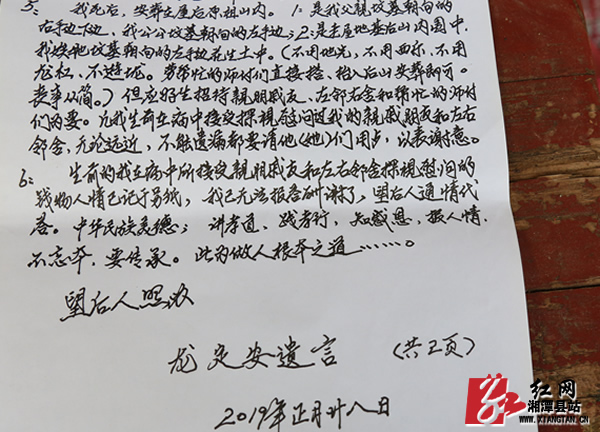 5: 我死后,安葬在屋后原祖山内。1:是我父親坟墓朝向的
右手边,我公公坟墓朝向的左手边;2:是老屋地基后山内園中
我埃毑坟墓朝向的左手边花生土中。(不用地先,不用西乐,不用
龙杠,不游垅。劳帮忙的师付们直接抬,抬入后山安葬即可。
丧事从简。)但应好生招待親朋戚友、左邻右舍和帮忙的师付
们为要。凡我生前在病中接受探視慰问过我的親戚朋友和左右
邻舍,无论远近,不能遗漏都要请他(她)们用歺,以表谢意。
6: 生前的我在病中所接受親朋戚友和左右邻舍探視慰问的
钱物人情已记于另纸,我已无法报答酬谢了,望后人通情代
答。中华民族美德;讲孝道,践孝行,知感恩,报人情,
不忘本,要传承。此为做人根本之道……。
望后人照办
龙定安遺言 (共三页)
2019年正月廿八日
红网
湘潭县站
www.XIANGTAN.CN